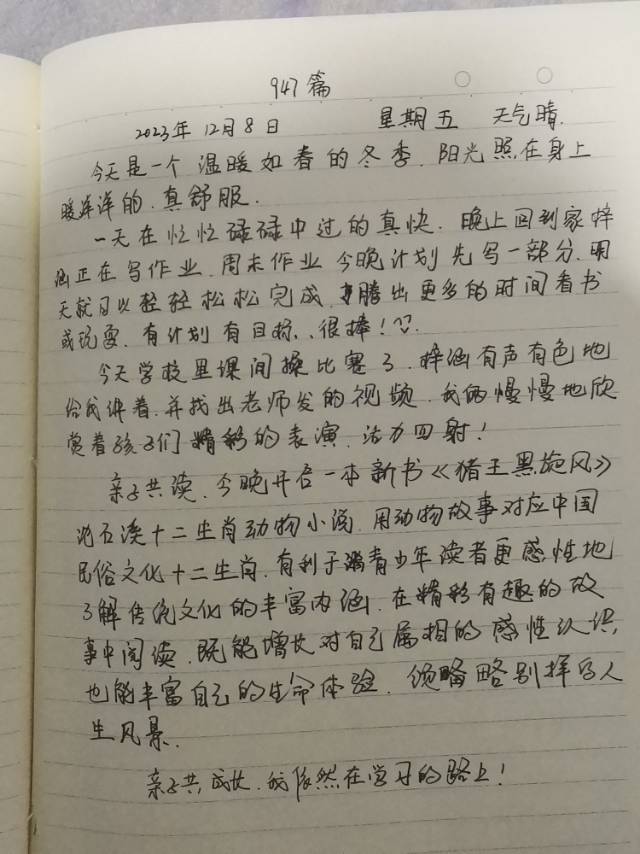 947篇
2023年12月8日 星期五 天气晴.
今天是一个温暖如春的冬季.阳光照在身上
暖洋洋的.真舒服.
一天在忙忙碌碌中过的真快.晚上回到家梓
涵正在写作业.周末作业今晚计划先写一部分.明
天就可以轻轻松松完成.腾出更多的时间看书
或玩耍.有计划有目标..很棒!♡.
今天学校里课间操比赛了.梓涵有声有色地
给我讲着.并找出老师发的视频.我俩慢慢地欣
赏着孩子们精彩的表演.活力四射!
亲子共读.今晚开启一本新书《猪王黑旋风》
沈石溪十二生肖动物小说.用动物故事对应中国
民俗文化十二生肖.有利于青少年读者更感性地
了解传统文化的丰富内涵.在精彩有趣的故
事中阅读.既能增长对自己属相的感性认识,
也能丰富自己的生命体验.领略别样的人
生风景.
亲子共成长.我依然在学习的路上!